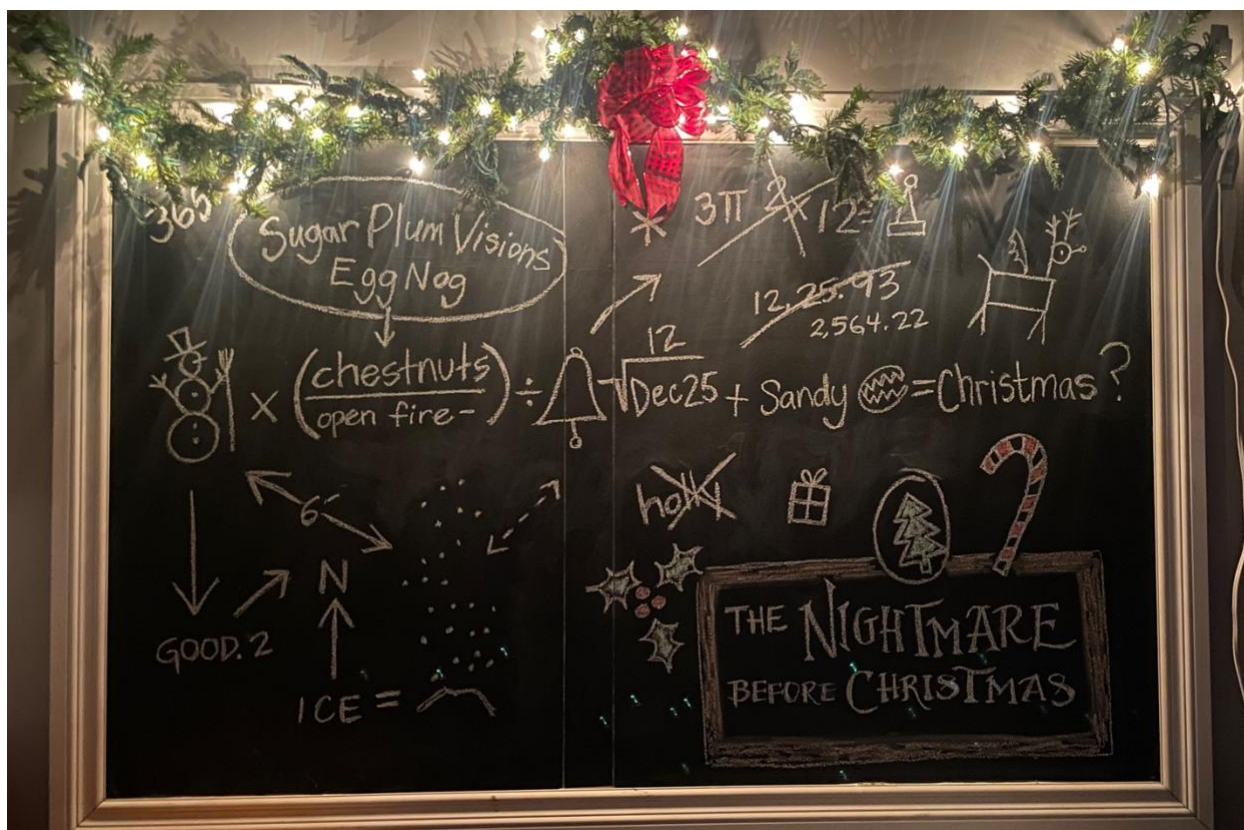 365
Sugar Plum Visions
Egg Nog
3π 2 12=
12.25.93
2,564.22
× (chestnuts) ÷ 12
open fire-
√Dec25 + Sandy = Christmas ?
6-
holly
N
GOOD. 2
ICE =
THE NIGHTMARE
BEFORE CHRISTMAS